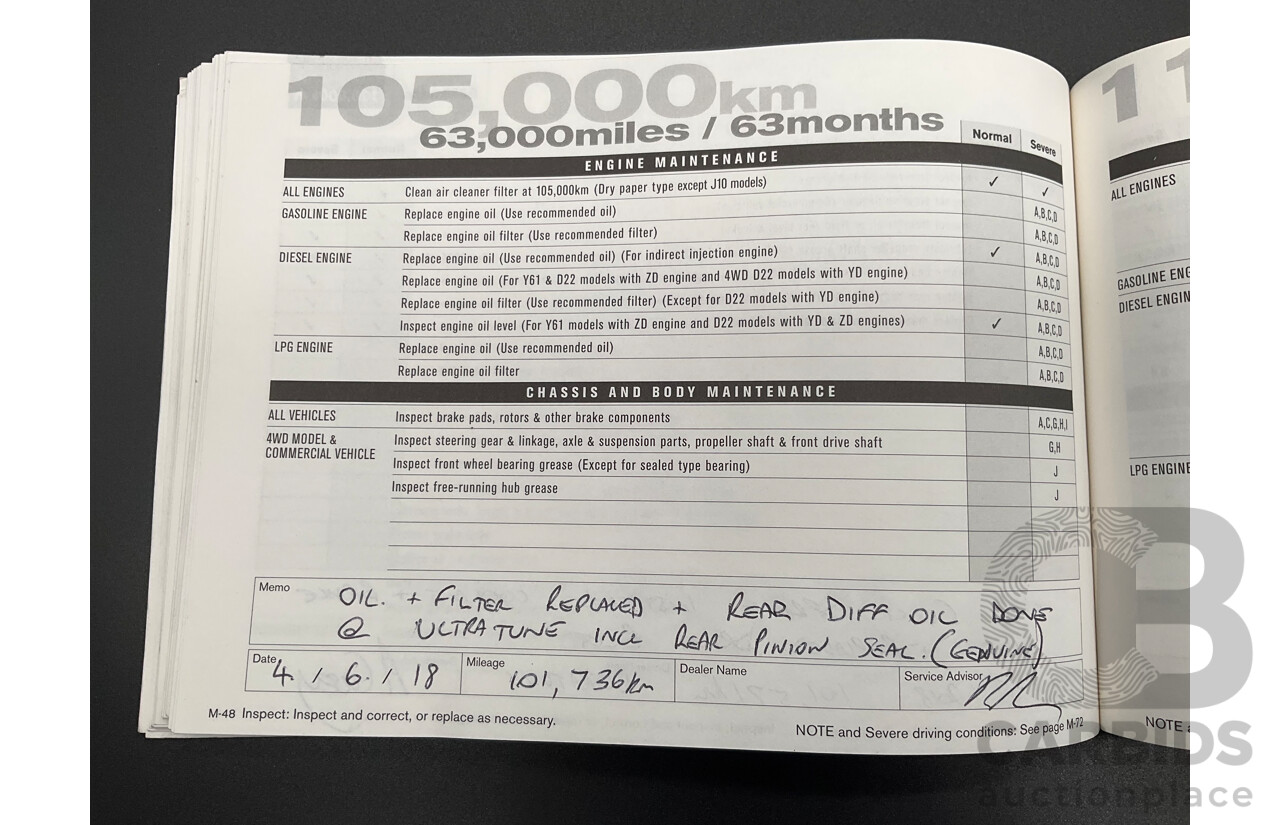 105,000km
63,000miles / 63months
Normal Severe
ENGINE MAINTENANCE
ALL ENGINES Clean air cleaner filter at 105,000km (Dry paper type except J10 models) ✓ ✓
GASOLINE ENGINE Replace engine oil (Use recommended oil) A,B,C,D
Replace engine oil filter (Use recommended filter) A,B,C,D
DIESEL ENGINE Replace engine oil (Use recommended oil) (For indirect injection engine) ✓ A,B,C,D
Replace engine oil (For Y61 & D22 models with ZD engine and 4WD D22 models with YD engine) A,B,C,D
Replace engine oil filter (Use recommended filter) (Except for D22 models with YD engine) A,B,C,D
Inspect engine oil level (For Y61 models with ZD engine and D22 models with YD & ZD engines) ✓ A,B,C,D
LPG ENGINE Replace engine oil (Use recommended oil) A,B,C,D
Replace engine oil filter A,B,C,D
CHASSIS AND BODY MAINTENANCE
ALL VEHICLES Inspect brake pads, rotors & other brake components A,C,G,H,I
4WD MODEL & Inspect steering gear & linkage, axle & suspension parts, propeller shaft & front drive shaft G,H
COMMERCIAL VEHICLE
Inspect front wheel bearing grease (Except for sealed type bearing) J
Inspect free-running hub grease J
Memo OIL. + FILTER REPLACED + REAR DIFF OIL DONE
@ ULTRATUNE INCL REAR PINION SEAL. (GENUINE)
Date 4 / 6 / 18 Mileage 101,736km Dealer Name Service Advisor
M-48 Inspect: Inspect and correct, or replace as necessary. NOTE and Severe driving conditions: See page M-72
11
ALL ENGINES
GASOLINE ENG
DIESEL ENGIN
LPG ENGINE
NOTE
CARBIDS
auctionplace